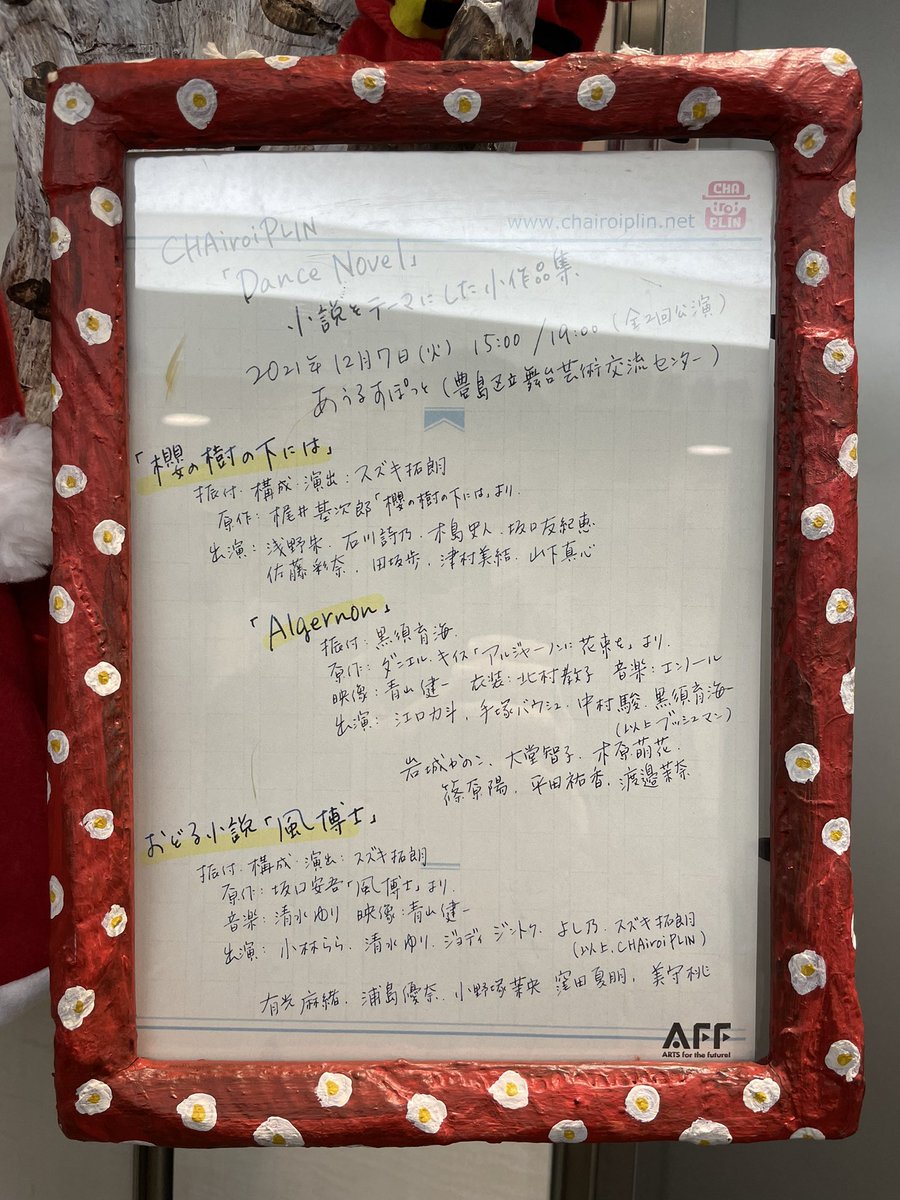 www.chairoiplin.net
CHA
iroi
PLIN
CHAiroiPLIN
「Dance Novel」
小説をテーマにした小作品集
2021年12月7日(火) 15:00/19:00(全2回公演)
あうるすぽっと(豊島区立舞台芸術交流センター)
「櫻の樹の下には」
振付・構成・演出:スズキ拓朗
原作:梶井基次郎「櫻の樹の下には」より.
出演:浅野朱. 石川詩乃. 木島史人. 坂口友紀恵
佐藤彩奈. 田坂歩. 津村美結. 山下真心
「Algernon」
振付:黒須育海.
原作:ダニエル・キイス「アルジャーノンに花束を」より.
映像:青山健一 衣装:北村教子 音楽:エンノール
出演:江口力斗. 手塚バウシュ. 中村駿. 黒須育海
(以上ブッシュマン)
岩城かのこ. 大堂智子. 木原萌花.
篠原陽. 平田祐香. 渡邉茉奈
おどる小説「風博士」
振付・構成・演出:スズキ拓朗
原作:坂口安吾「風博士」より.
音楽:清水ゆり 映像:青山健一
出演:小林らら. 清水ゆり. ジョディ. ジントク. よし乃. スズキ拓朗
(以上、CHAiroiPLIN)
有光麻緒. 浦島優奈. 小野塚茉央 窪田夏朋. 美守桃
AFF
ARTS for the future!